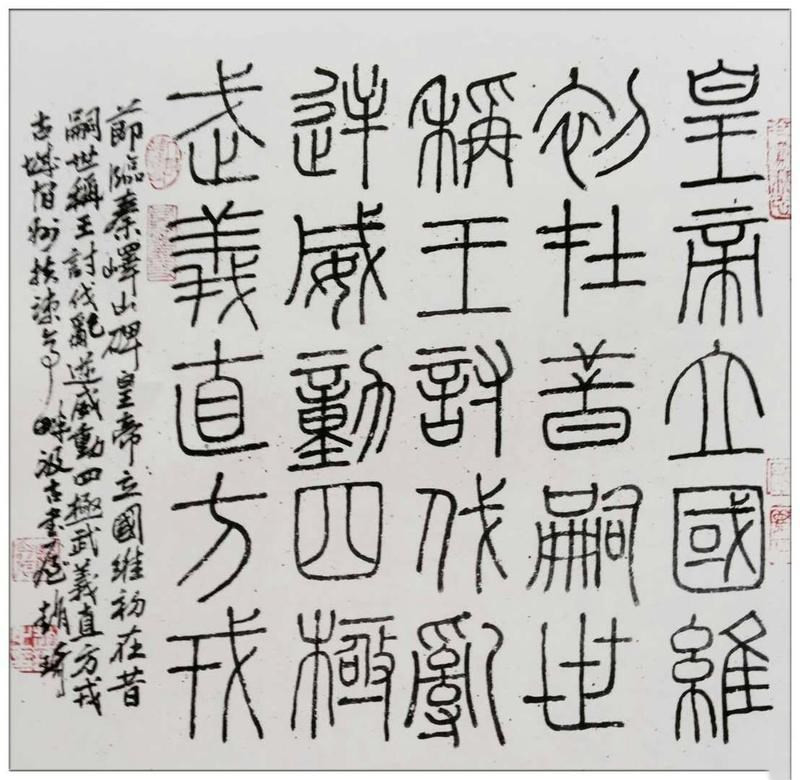 皇帝立國維
初在昔嗣世
稱王討伐亂
逆威動四極
武義直方戎
節臨秦嶧山碑皇帝立國維初在昔
嗣世稱王討伐亂逆威動四極武義直方戎
古城